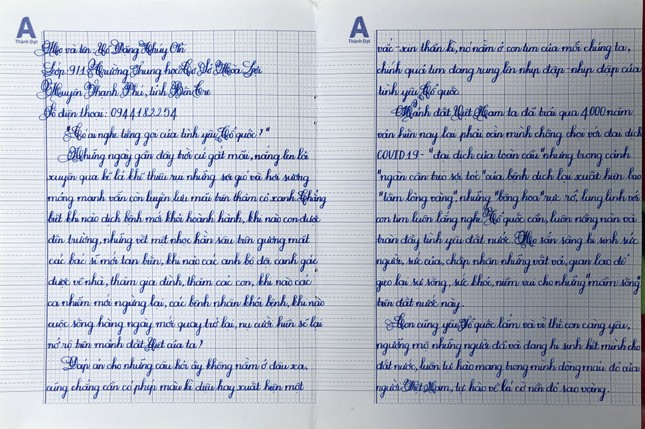 A
Thành Đạt
Họ và tên: Hồ Đặng Thúy On
Lớp: 9/1 Trường Trung học Cơ Sở Hòa Lợi
Huyện Thạnh Phú, tỉnh Bến Tre
Số điện thoại: 0944182254
"Có ai nghe tiếng gọi của tình yêu Tổ quốc?"
Những ngày gần đây trời cứ gắt mãi, nắng len lỏi
xuyên qua kẽ lá khẽ thiêu rụi những sợi gió và hơi sương
mỏng manh vẫn còn luyến lưu mãi trên thảm cỏ xanh. Chẳng
biết khi nào dịch bệnh mới khỏi hoành hành, khi nào con được
đến trường, những vết mệt nhọc hằn sâu trên gương mặt
các bác sĩ mới tan biến, khi nào các anh bộ đội canh gác
được về nhà, thăm gia đình, thăm các con, khi nào các
ca nhiễm mới ngừng lại, các bệnh nhân khỏi bệnh, khi nào
cuộc sống hàng ngày mới quay trở lại, nụ cười hiền sẽ lại
nở rộ trên mảnh đất Việt của ta?
Đáp án cho những câu hỏi ấy không nằm ở đâu xa,
cũng chẳng cần có phép màu kì diệu hay xuất hiện một
A
Thành Đạt
vắc-xin thần kì, nó nằm ở con tim của mỗi chúng ta,
chính quả tim đang rung lên nhịp đập - nhịp đập của
tình yêu Tổ quốc.
Mảnh đất Việt Nam ta đã trải qua 4000 năm
văn hiến nay lại phải oằn mình chống chọi với đại dịch
COVID19 - "đại dịch của toàn cầu" nhưng trong cảnh
"ngàn cân treo sợi tóc" của bệnh dịch lại xuất hiện bao
"tấm lòng vàng", những "bông hoa" rực rỡ, lung linh với
con tim luôn lắng nghe Tổ quốc cần, luôn nồng nàn và
tràn đầy tình yêu đất nước. Họ sẵn sàng hi sinh sức
người, sức của, chấp nhận những vất vả, gian lao để
gieo lại sự sống, sức khỏe, niềm vui cho những "mầm sống"
trên đất nước này.
Con cũng yêu Tổ quốc lắm và vì thế con càng yêu,
ngưỡng mộ những người đã và đang hi sinh hết mình cho
đất nước, luôn tự hào mang trong mình dòng máu đỏ của
người Việt Nam, tự hào về lá cờ nền đỏ sao vàng.